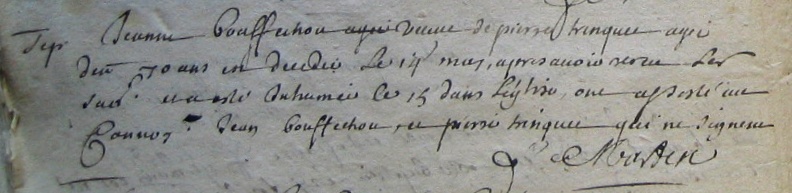 Sep. Jeanne bouffechou agée veuve de pierre trinquee agée
den.on 70 ans est decedée le 14e mars, apres avoir receu les
sacr. et a este inhumée le 15 dans l'eglise, ont assisté au
Convoy Jean bouffechou, et pierre trinquee qui ne signent
Martin